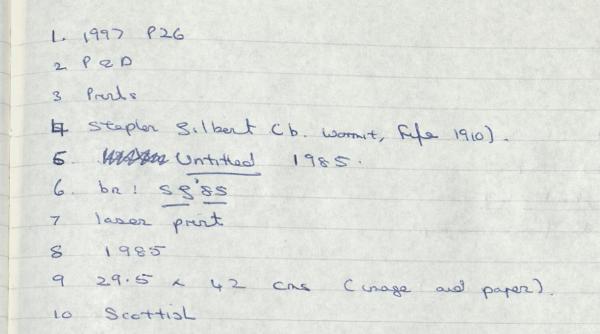 1. 1997 P26
2 P & D
3 Prints
4 Stephen Gilbert (b. Wormit, Fife 1910).
5. Untitled 1985.
6. br: SG '85
7 laser print
8 1985
9 29.5 x 42 cms (image and paper).
10 Scottish